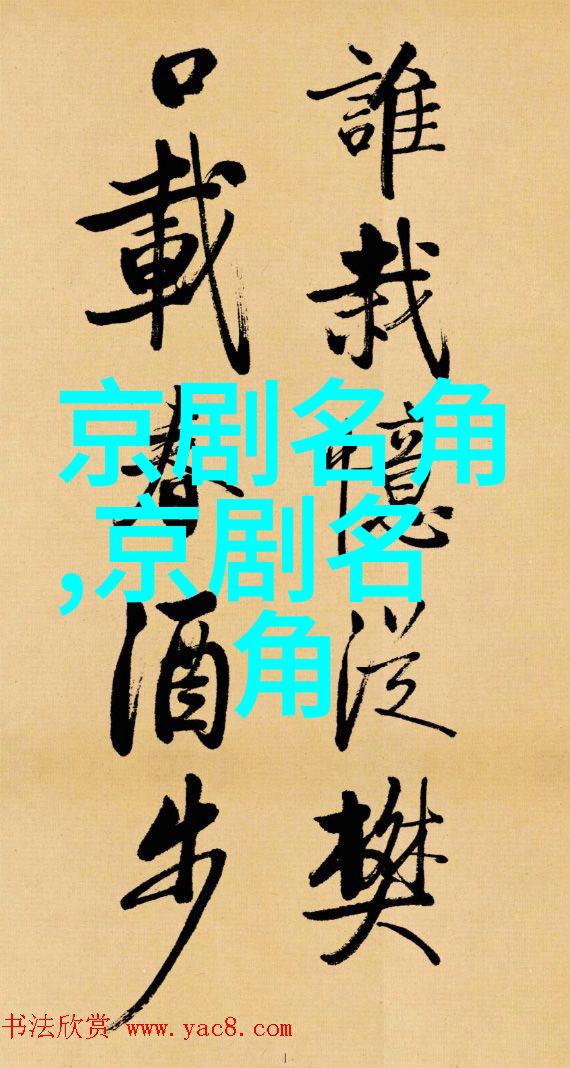 誰栽憶從樊
口載春酒步
京剧名角
,京剧名
角
书法欣赏 www.yac8.com